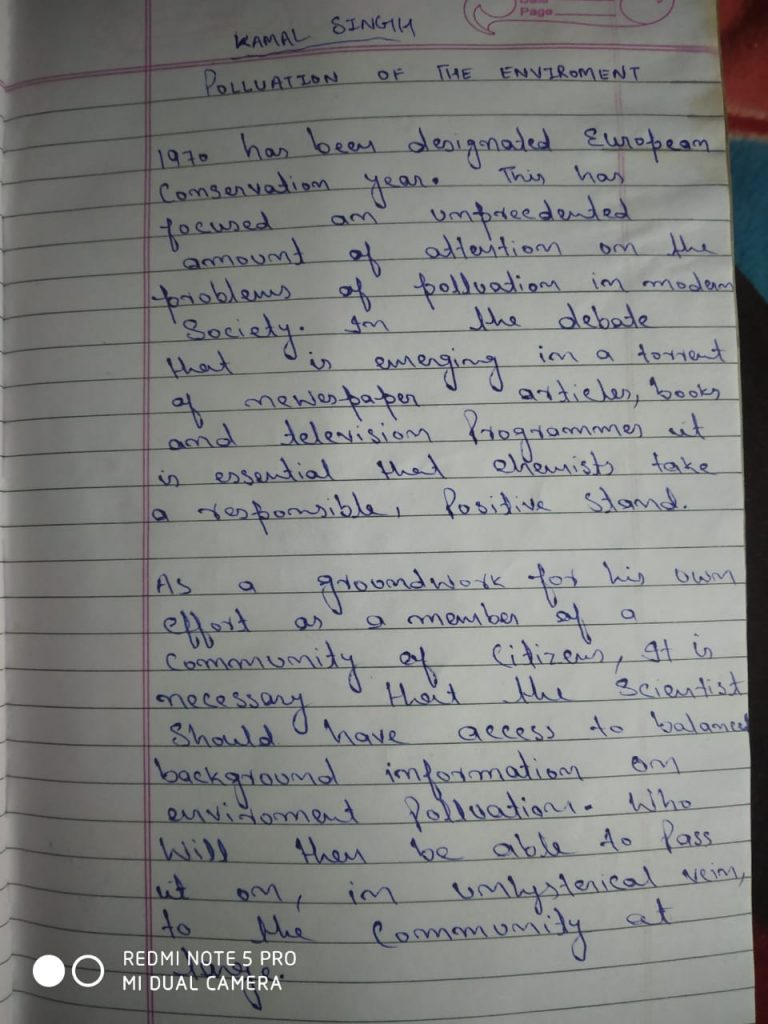 Page
KAMAL SINGH
POLLUATION OF THE ENVIROMENT
1970 has been designated European
Conservation year. This has
focused an unpreedented
amount of attention on the
problems of polluation in modern
Society. In the debate
that is emerging in a torrent
of newespaper articles, books
and television Programmes it
is essential that chemists take
a responsible, Positive stand.
As a groundwork for his own
effort as a member of a
Community of Citizens, It is
necessary that the Scientist
Should have access to balanced
background information on
enviroment Polluation. Who
Will then be able to Pass
it on, in unhysterical vein,
to the Community at
large.
REDMI NOTE 5 PRO
MI DUAL CAMERA